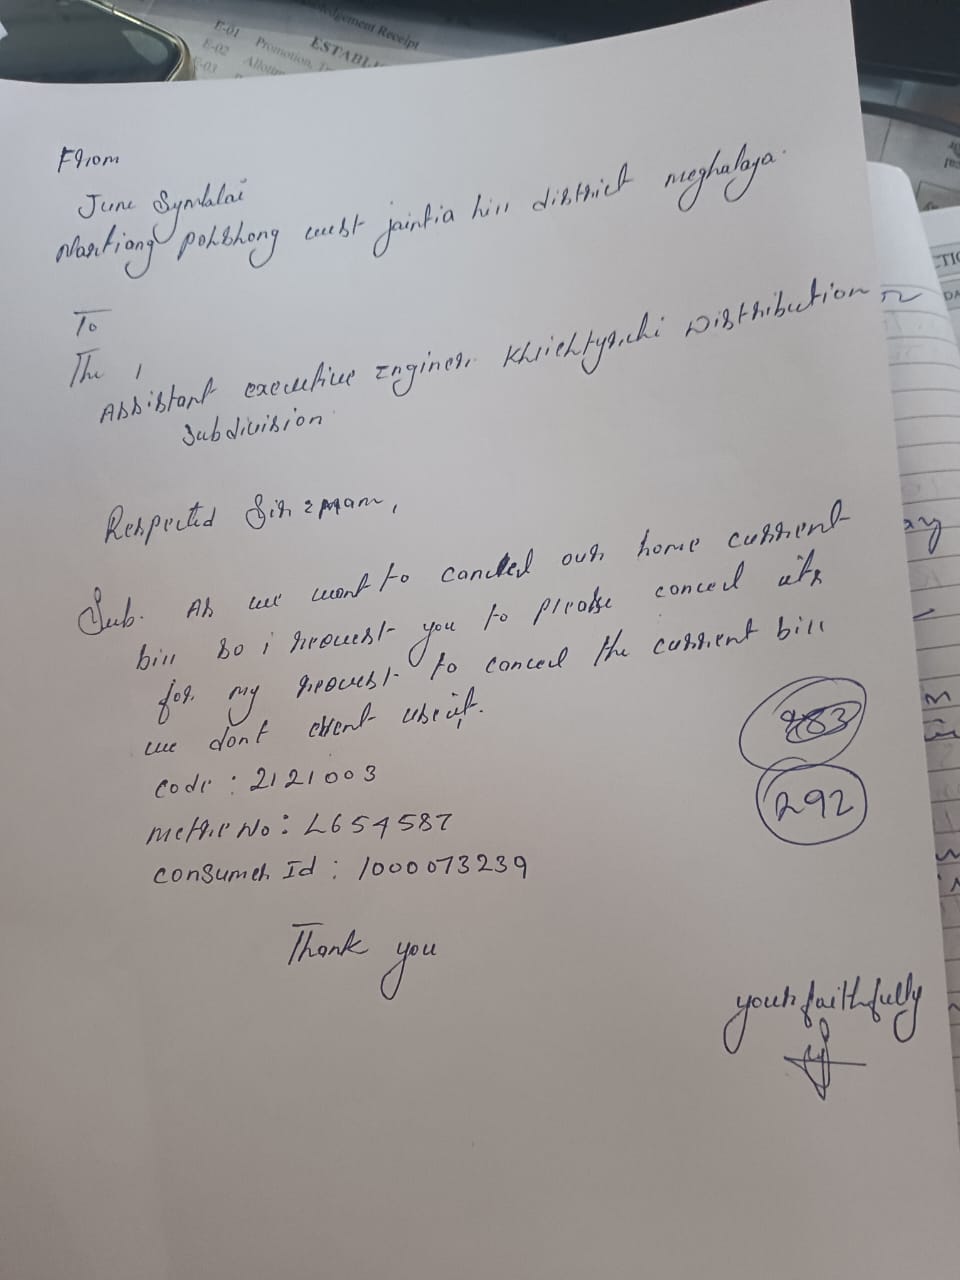 Acknowledgement Receipt
ESTABLI
E-01 Promotion, Tr
E-02 Allotm
E-03
From
June Symblai
Nartiang pohshong west jaintia hill district meghalaya.
To
The
Assistant executive Engineer Khliehtyrchi Distribution
Subdivision
Respected Sir & Mam,
Sub. As we want to canceled our home current
bill so i request you to please cancel
for my request to cancel the current bill
we dont use it.
code : 2121003
No : L654587
consumer Id : 1000073239
292
Thank you
your faithfully